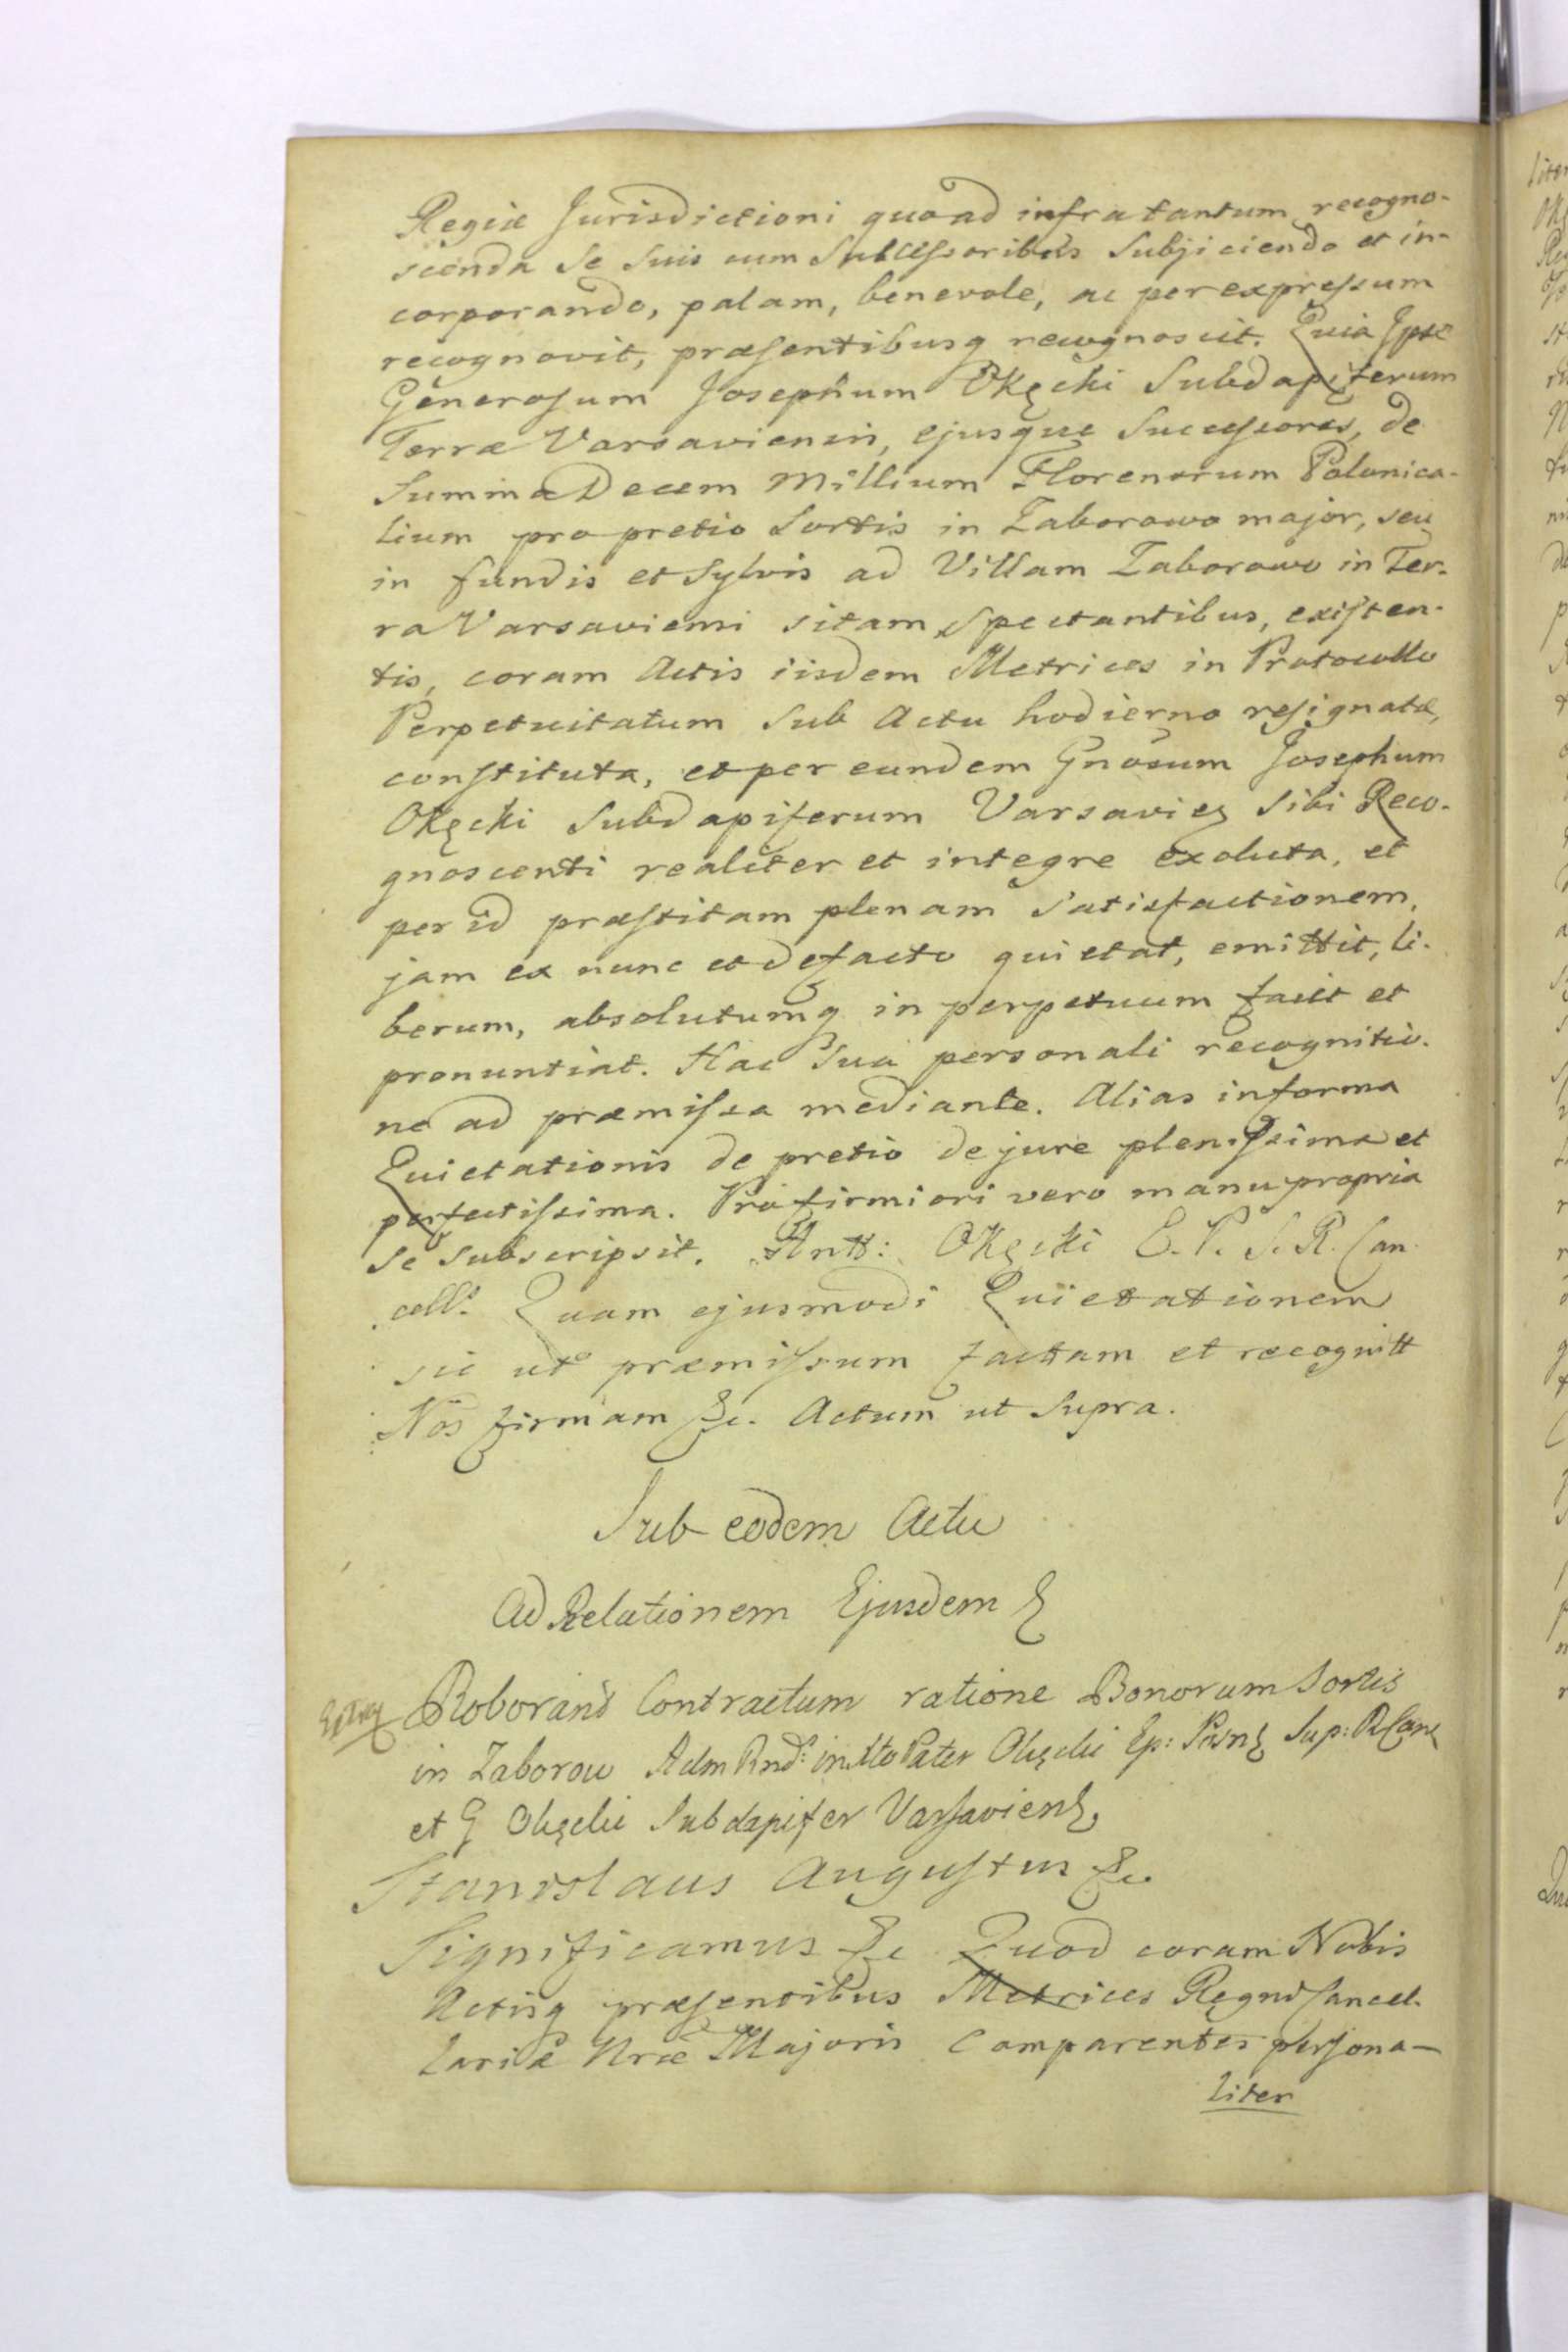 Regiæ Jurisdictioni quoad infra tantum recogno-
scenda se suis cum Successoribus Subjiciendo et in-
corporando, palam, benevole, ac per expressum
recognovit, præsentibusq recognoscit. Quia Ipse
Generosum Josephum Okęcki Subdapiferum
Terræ Varsaviensis, ejusque Successores, de
Summa Decem Millium Florenorum Polonica-
lium pro pretio Sortis in Zaborowo major, seu
in fundis et Sylvis ad Villam Zaborowo in Ter-
ra Varsaviensi sitam, Spectantibus, existen-
tis, coram Actis iisdem Metrices in Protocollo
Perpetuitatum Sub Actu hodierno resignatæ,
constituta, et per eundem Gnosum Josephum
Okęcki Subdapiferum Varsavies Sibi Reco-
gnoscenti realiter et integre exoluta, et
per id præstitam plenam Satisfactionem,
jam ex nunc et defacto quietat, emittit, li-
berum, absolutumq in perpetuum facit et
pronuntiat. Hac Sua personali recognitio-
ne ad præmissa mediante. Alias in forma
Quietationis de pretio de jure plenissima et
perfectissima. Pro firmiori vero manu propria
se subscripsit. Antt: Okęcki E. P. S. R. Can-
cells. Quam ejusmodi Quietationem
sic ut præmissum factam et recognitt
Nos firmam &c. Actum ut Supra.
Sub eodem Actu
Ad Relationem Ejusdem
Roborand Contractum ratione Bonorum Sortis
in Zaborow Adm Rnd: Pater Okęcki Ep: Posn Sup: R Canc
et G Okęcki Subdapifer Varsaviens,
Stanislaus Augustus &c.
Significamus &c Quod coram Nobis
Actisq præsentibus Metrices Regni Cancel-
lariæ Nræ Majoris Comparentes persona-
liter